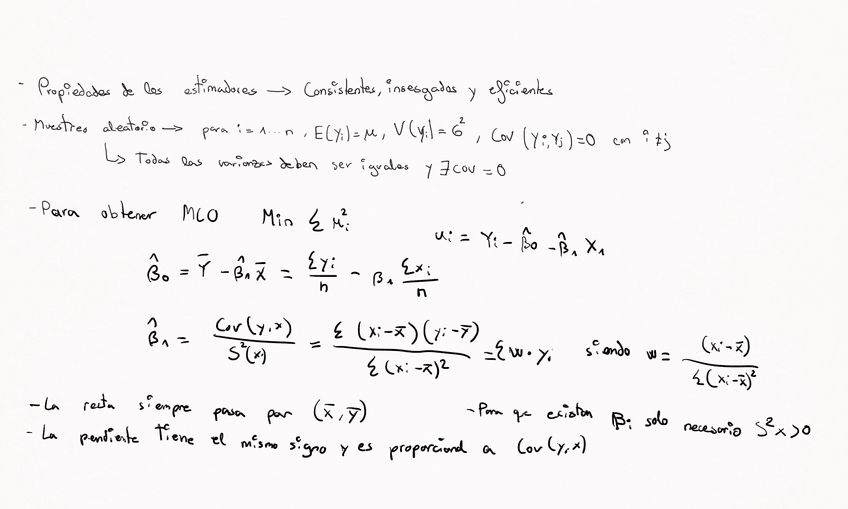 - Propiedades de los estimadores → Consistentes, insesgados y eficientes
- Muestreo aleatorio → para i = 1...n, E(yi) = μ, V(yi) = σ², Cov(yi,yj) = 0 con i ≠ j
↳ Todas las varianzas deben ser iguales y ∃ cov = 0
- Para obtener MCO Min Σ μ̂i² ui = Yi - β̂0 - β̂1 X1
β̂0 = Ȳ - β̂1 x̄ = Σyi/n - β1 Σxi/n
β̂1 = Cov(y,x)/S²(x) = Σ(xi-x̄)(yi-ȳ)/Σ(xi-x̄)² = Σw·yi siendo w = (xi-x̄)/Σ(xi-x̄)²
- La recta siempre pasa por (x̄,ȳ) - Para qe existan βi solo necesario S²x>0
- La pendiente tiene el mismo signo y es proporcional a Cov(y,x)